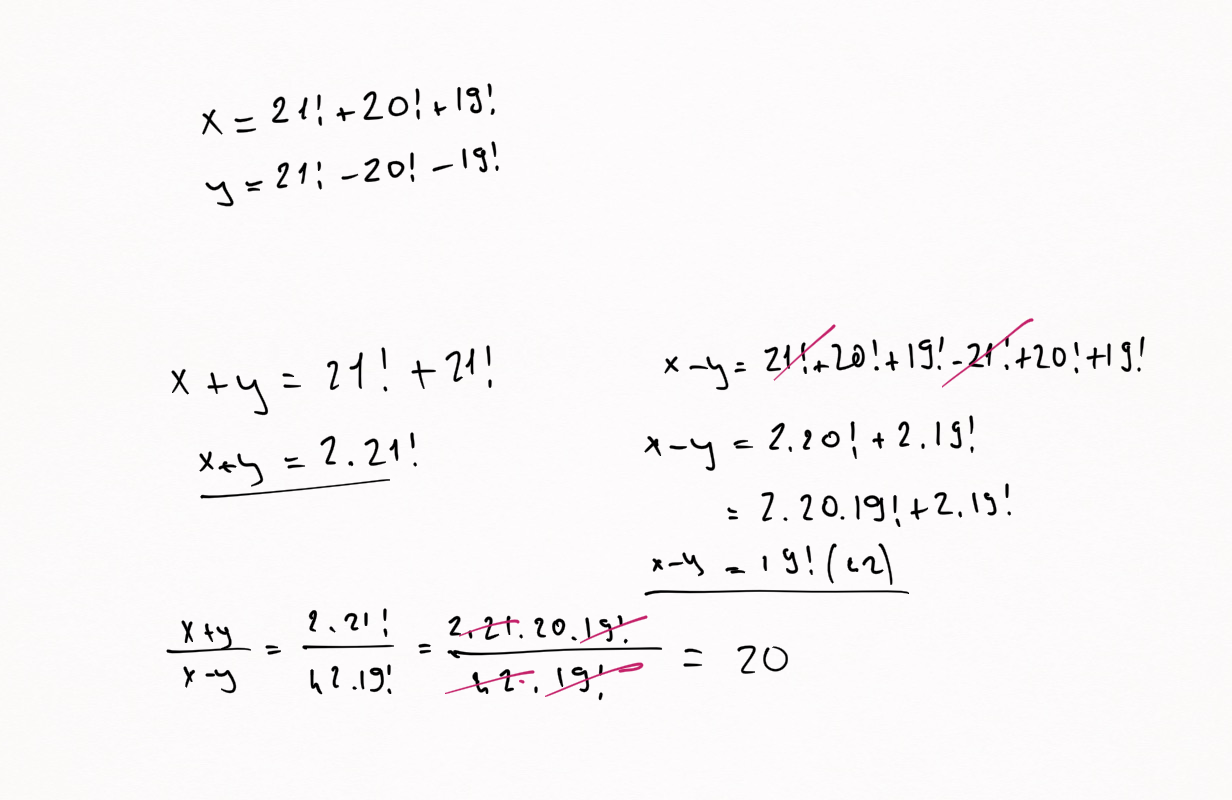 x = 21! + 20! + 19!
y = 21! - 20! - 19!
x + y = 21! + 21!
x+y = 2.21!
x - y = 21! + 20! + 19! - 21! + 20! + 19!
x - y = 2.20! + 2.19!
= 2.20.19! + 2.19!
x-y = 19! (42)
x+y / x-y = 2.21! / 42.19! = 2.21.20.19! / 42.19! = 20